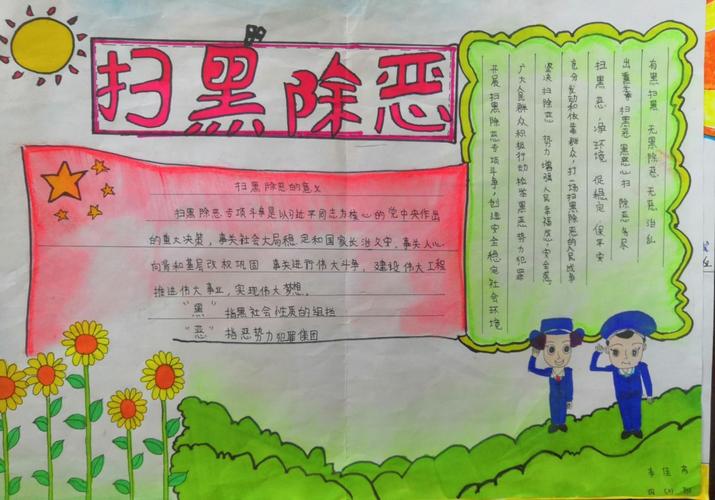 扫黑除恶
扫黑除恶的意义
扫黑除恶专项斗争是以习近平同志为核心的党中央作出
的重大决策，事关社会大局稳定和国家长治久安，事关人心
向背和基层政权巩固 事关进行伟大斗争，建设伟大工程
推进伟大事业，实现伟大梦想。
"黑" 指黑社会性质的组织
"恶" 指恶势力犯罪集团
有黑扫黑 无黑除恶 无恶治乱
出重拳扫黑恶黑恶必扫 除恶务尽
扫黑恶 净环境 促稳定 保平安
充分发动和依靠群众，打一场扫黑除恶的人民战争
坚决扫除恶 势力 增强人民幸福感，安全感
广大人民群众积极行动检举黑恶势力犯罪
开展扫黑除恶专项斗争，创造安全稳定社会环境
李佳